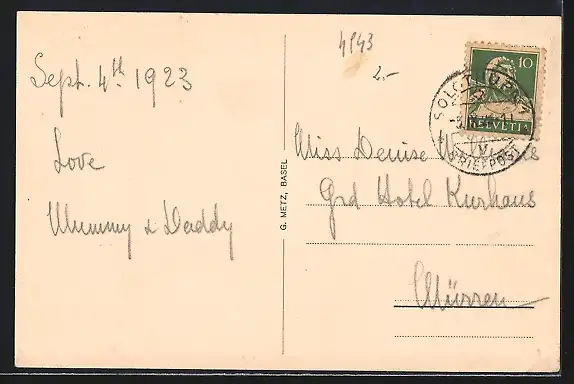 Sept. 4th 1923
Love
Mummy & Daddy
G. METZ, BASEL
4943
2.-
10
HELVETIA
SOLOTHURN
BRIEFPOST
Miss Denise
Grd Hotel Kurhaus
Mürren